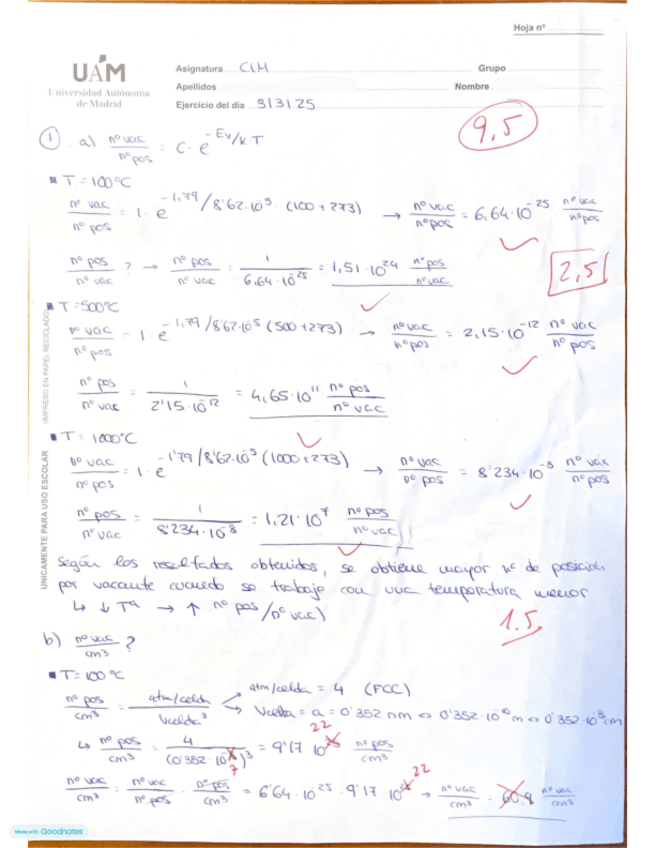 Hoja nº
UAM
Universidad Autónoma
de Madrid
Asignatura CIM Grupo
Apellidos Nombre
Ejercicio del día 3/3/25
9,5
① a) nº vac/nº pos = C · e^-Ev/k·T
■ T = 100ºC
nº vac/nº pos = 1 · e^-1,79/8'62·10^-5 · (100+273) → nº vac/nº pos = 6,64·10^-25 nº vac/nº pos
nº pos/nº vac ? → nº pos/nº vac = 1/6,64·10^-25 = 1,51·10^24 nº pos/nº vac
2,5
■ T = 500ºC
nº vac/nº pos = 1 · e^-1,79/8'62·10^-5 (500+273) → nº vac/nº pos = 2,15·10^-12 nº vac/nº pos
nº pos/nº vac = 1/2'15·10^-12 = 4,65·10^11 nº pos/nº vac
■ T = 1000ºC
nº vac/nº pos = 1 · e^-1'79/8'62·10^-5 (1000+273) → nº vac/nº pos = 8'234·10^-8 nº vac/nº pos
nº pos/nº vac = 1/8'234·10^-8 = 1,21·10^7 nº pos/nº vac
Según los resultados obtenidos, se obtiene mayor nº de posición
por vacante cuando se trabaja con una temperatura menor
↳ ↓ Tª → ↑ nº pos/nº vac)
1.5
b) nº vac/cm³ ?
■ T = 100ºC
nº pos/cm³ = atm/celda / Vcelda³
atm/celda = 4 (FCC)
Vcelda = a = 0'352 nm ⇔ 0'352·10^-10 m ⇔ 0'352·10^-8 cm
↳ nº pos/cm³ = 4/(0'352·10^-7)³ = 9'17 10^22 nº pos/cm³
nº vac/cm³ = nº vac/nº pos · nº pos/cm³ = 6'64·10^-25 · 9'17·10^22 → nº vac/cm³ = 60.9 nº vac/cm³
IMPRESO EN PAPEL RECICLADO
UNICAMENTE PARA USO ESCOLAR
Made with Goodnotes